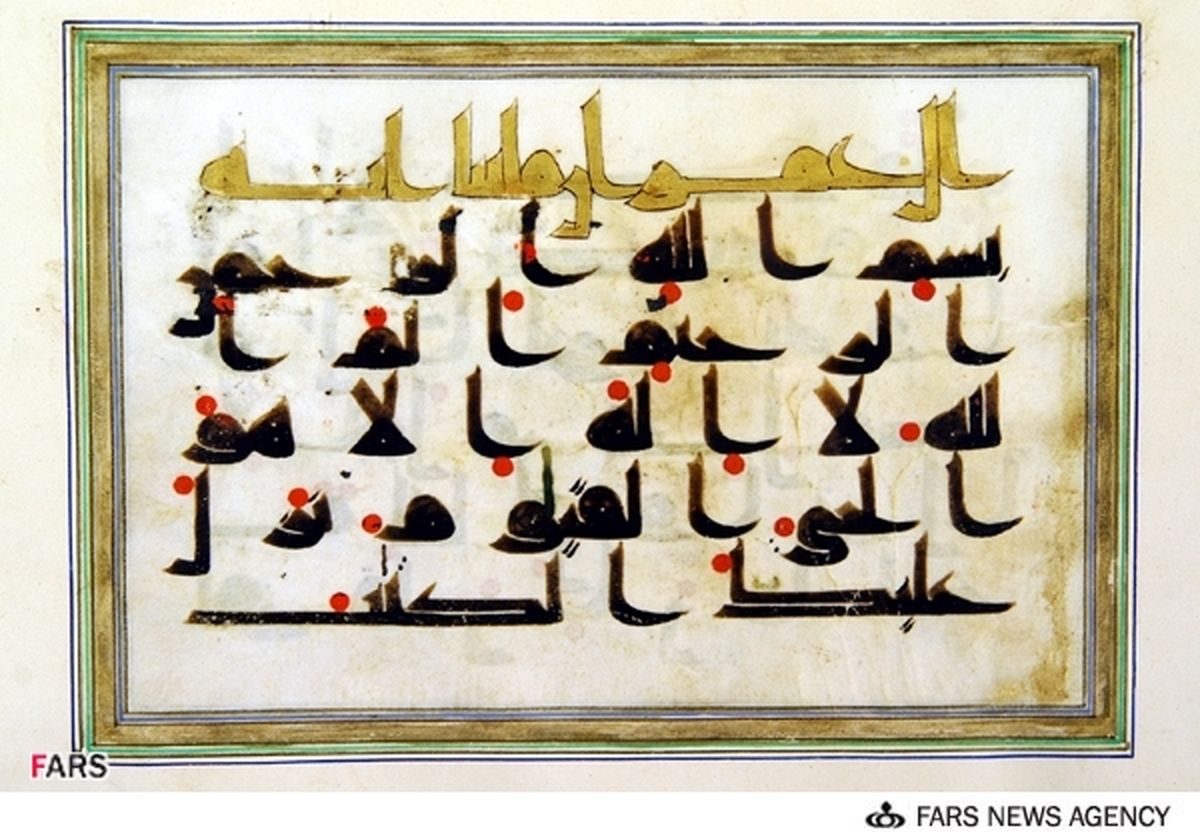 ال عمرن مايتا ايه
بسم الله الرحمن
الرحيم الم ا
لله لا اله الا هو
الحي القيوم نزل
عليك الكتب
FARS
FARS NEWS AGENCY